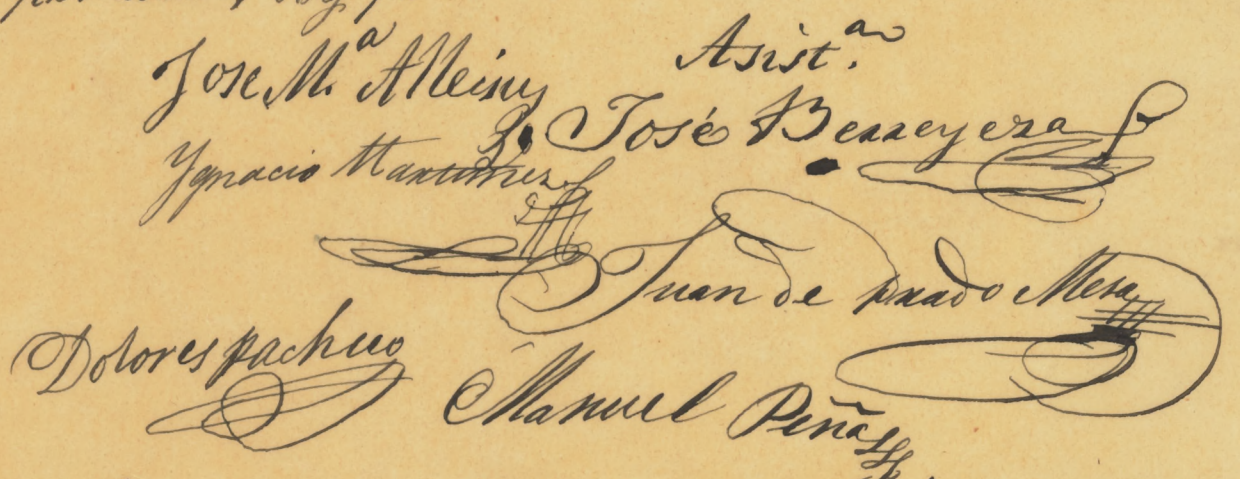 Asist.ª
Jose M.ª Alleiny
José Berreyera
Ygnacio Martinez
Juan de prado Mesa
Dolores pacheco
Manuel Peña